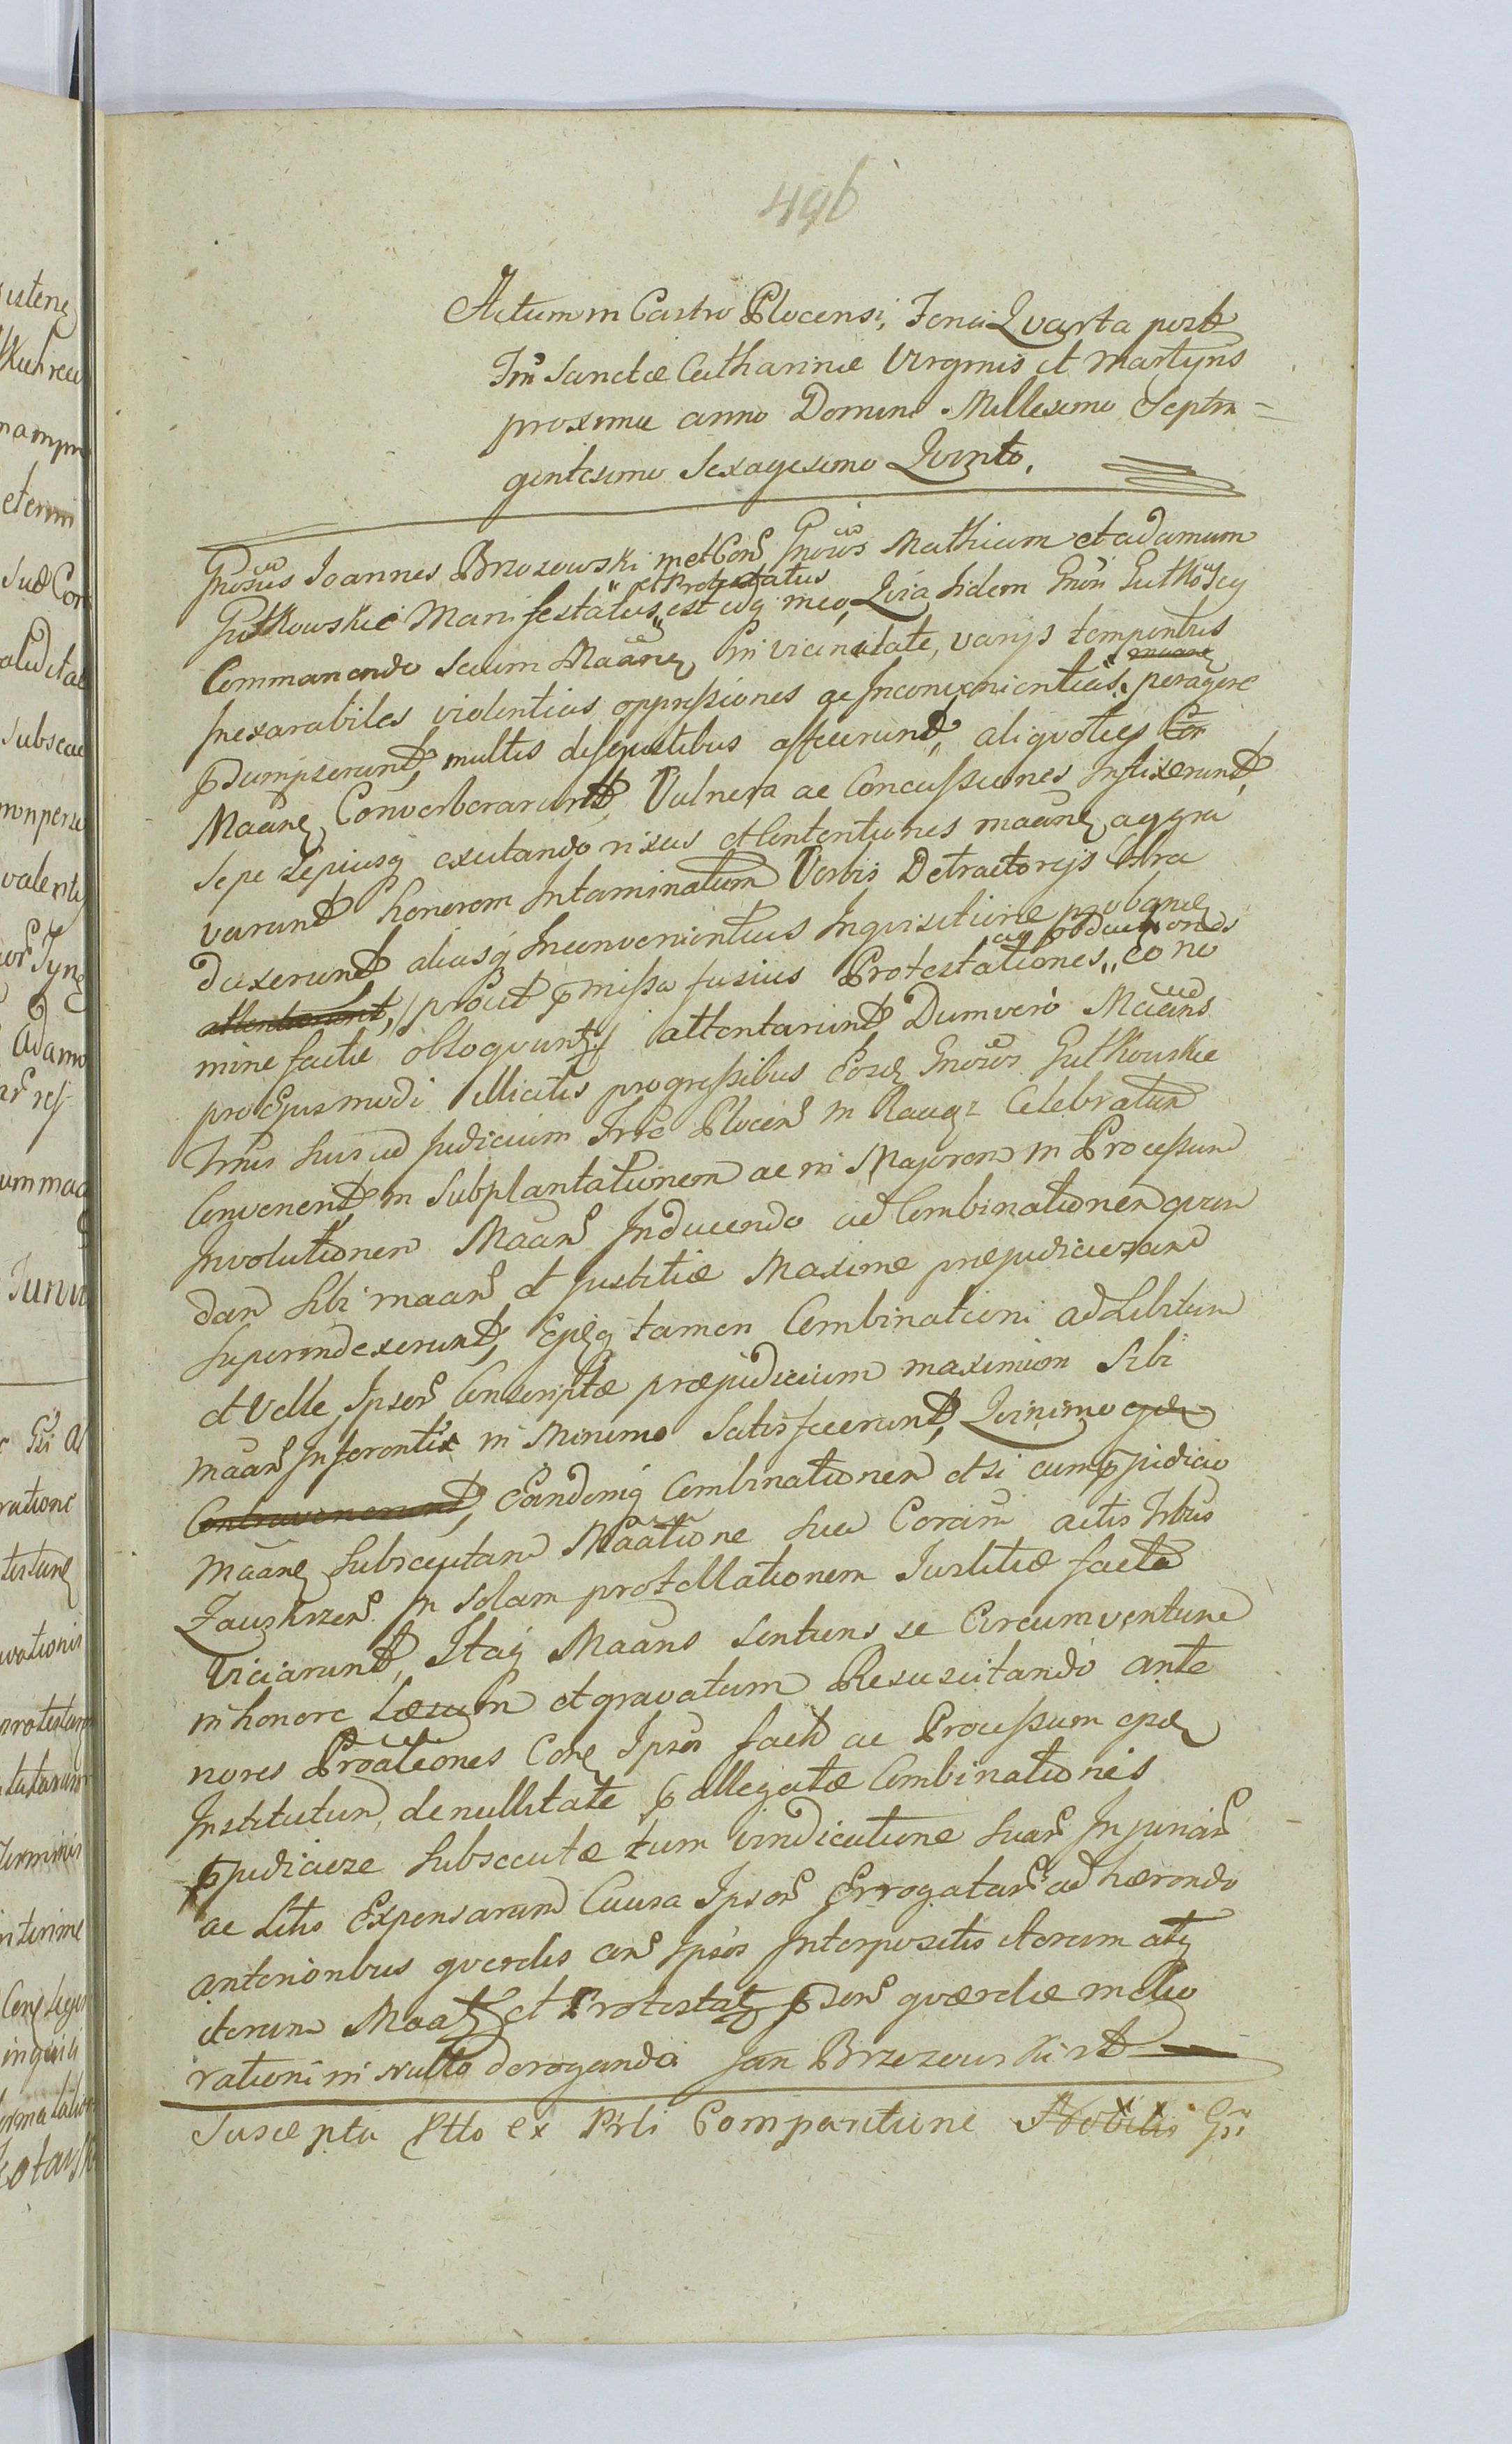 496
Actum in Castro Plocensi, Feria Qvarta post
Fm Sanctæ Catharinæ Virginis et Martyris
proxima anno Domini Millesimo Septin=
gentesimo Sexagesimo Qvinto.
Gnosus Joannes Brzozowski met Con Gnosos Mathiam et adamum
et Protestatus
Gutkowskie Manifestatus est idq meo, Qvia Iidem Gnosi Gutkoscy
Commanendo secum Maane in vicinitate, varijs temporibus
Inexarabiles violentias oppressiones ac Inconvenientias peragere
pdumpserunt, multis disgustibus affecerunt, aliqvoties Con
Maane Converberarunt, Vulnera ac Concussiones Inflixerunt,
sepe sepiusq excitando rixas et Contentiones maane aggra
varunt honorem Intaminatum Verbis Detractorijs Ctra
duxerunt aliasq Inconvenientias Inqvisitione probane
attentarunt, prout pmissa fusius Protestationes eo no
mine factæ obloqvunt attentarunt Dum vero Maans
pro Ejusmodi illicitis progressibus Eosd Gnosos Gutkowskie
Imis suis ad Judicium Trre Plocen in Raciąz Celebratum
Convenerit in Subplantationem ac in Majorem in Processum
Involutionem Maan Inducendo ad Combinationem qvan
dam sibi maan et Justitiæ Maxime præjudiciosam
superinduxerunt, Ejq tamen Combinationi ad Libitum
et Velle Ipsor Conscriptæ præjudicium maximum Sibi
maan Inferentis in Minimo Satisfecerunt, Qvinimo
Contravenerunt, Eandemq Combinationem etsi cum pjudicio
Maane subsecutam Maatione sua Coram actis
In solam protellationem Justitiæ facta
viciarunt, Itaq Maans sentiens se Circumventum
in honore Læsum et gravatum Resuscitando ante
riores Proationes Con Ipsos factas ac Processum
Institutum, de nullitate p allegatæ Combinationis
pjudiciose subsecutæ tum vindicatione suar Injuriar
ac Litis Expensarum Causa Ipsor Errogatar adhærendo
anterioribus qverelis con Ipsos Interpositis iterum atq
iterum Maat et Protestat psen qværelæ melio
rationi in nullo derogando Jan Brzozowski
Suscepta Ptto ex Prli Comparitione Nobilis Gsi